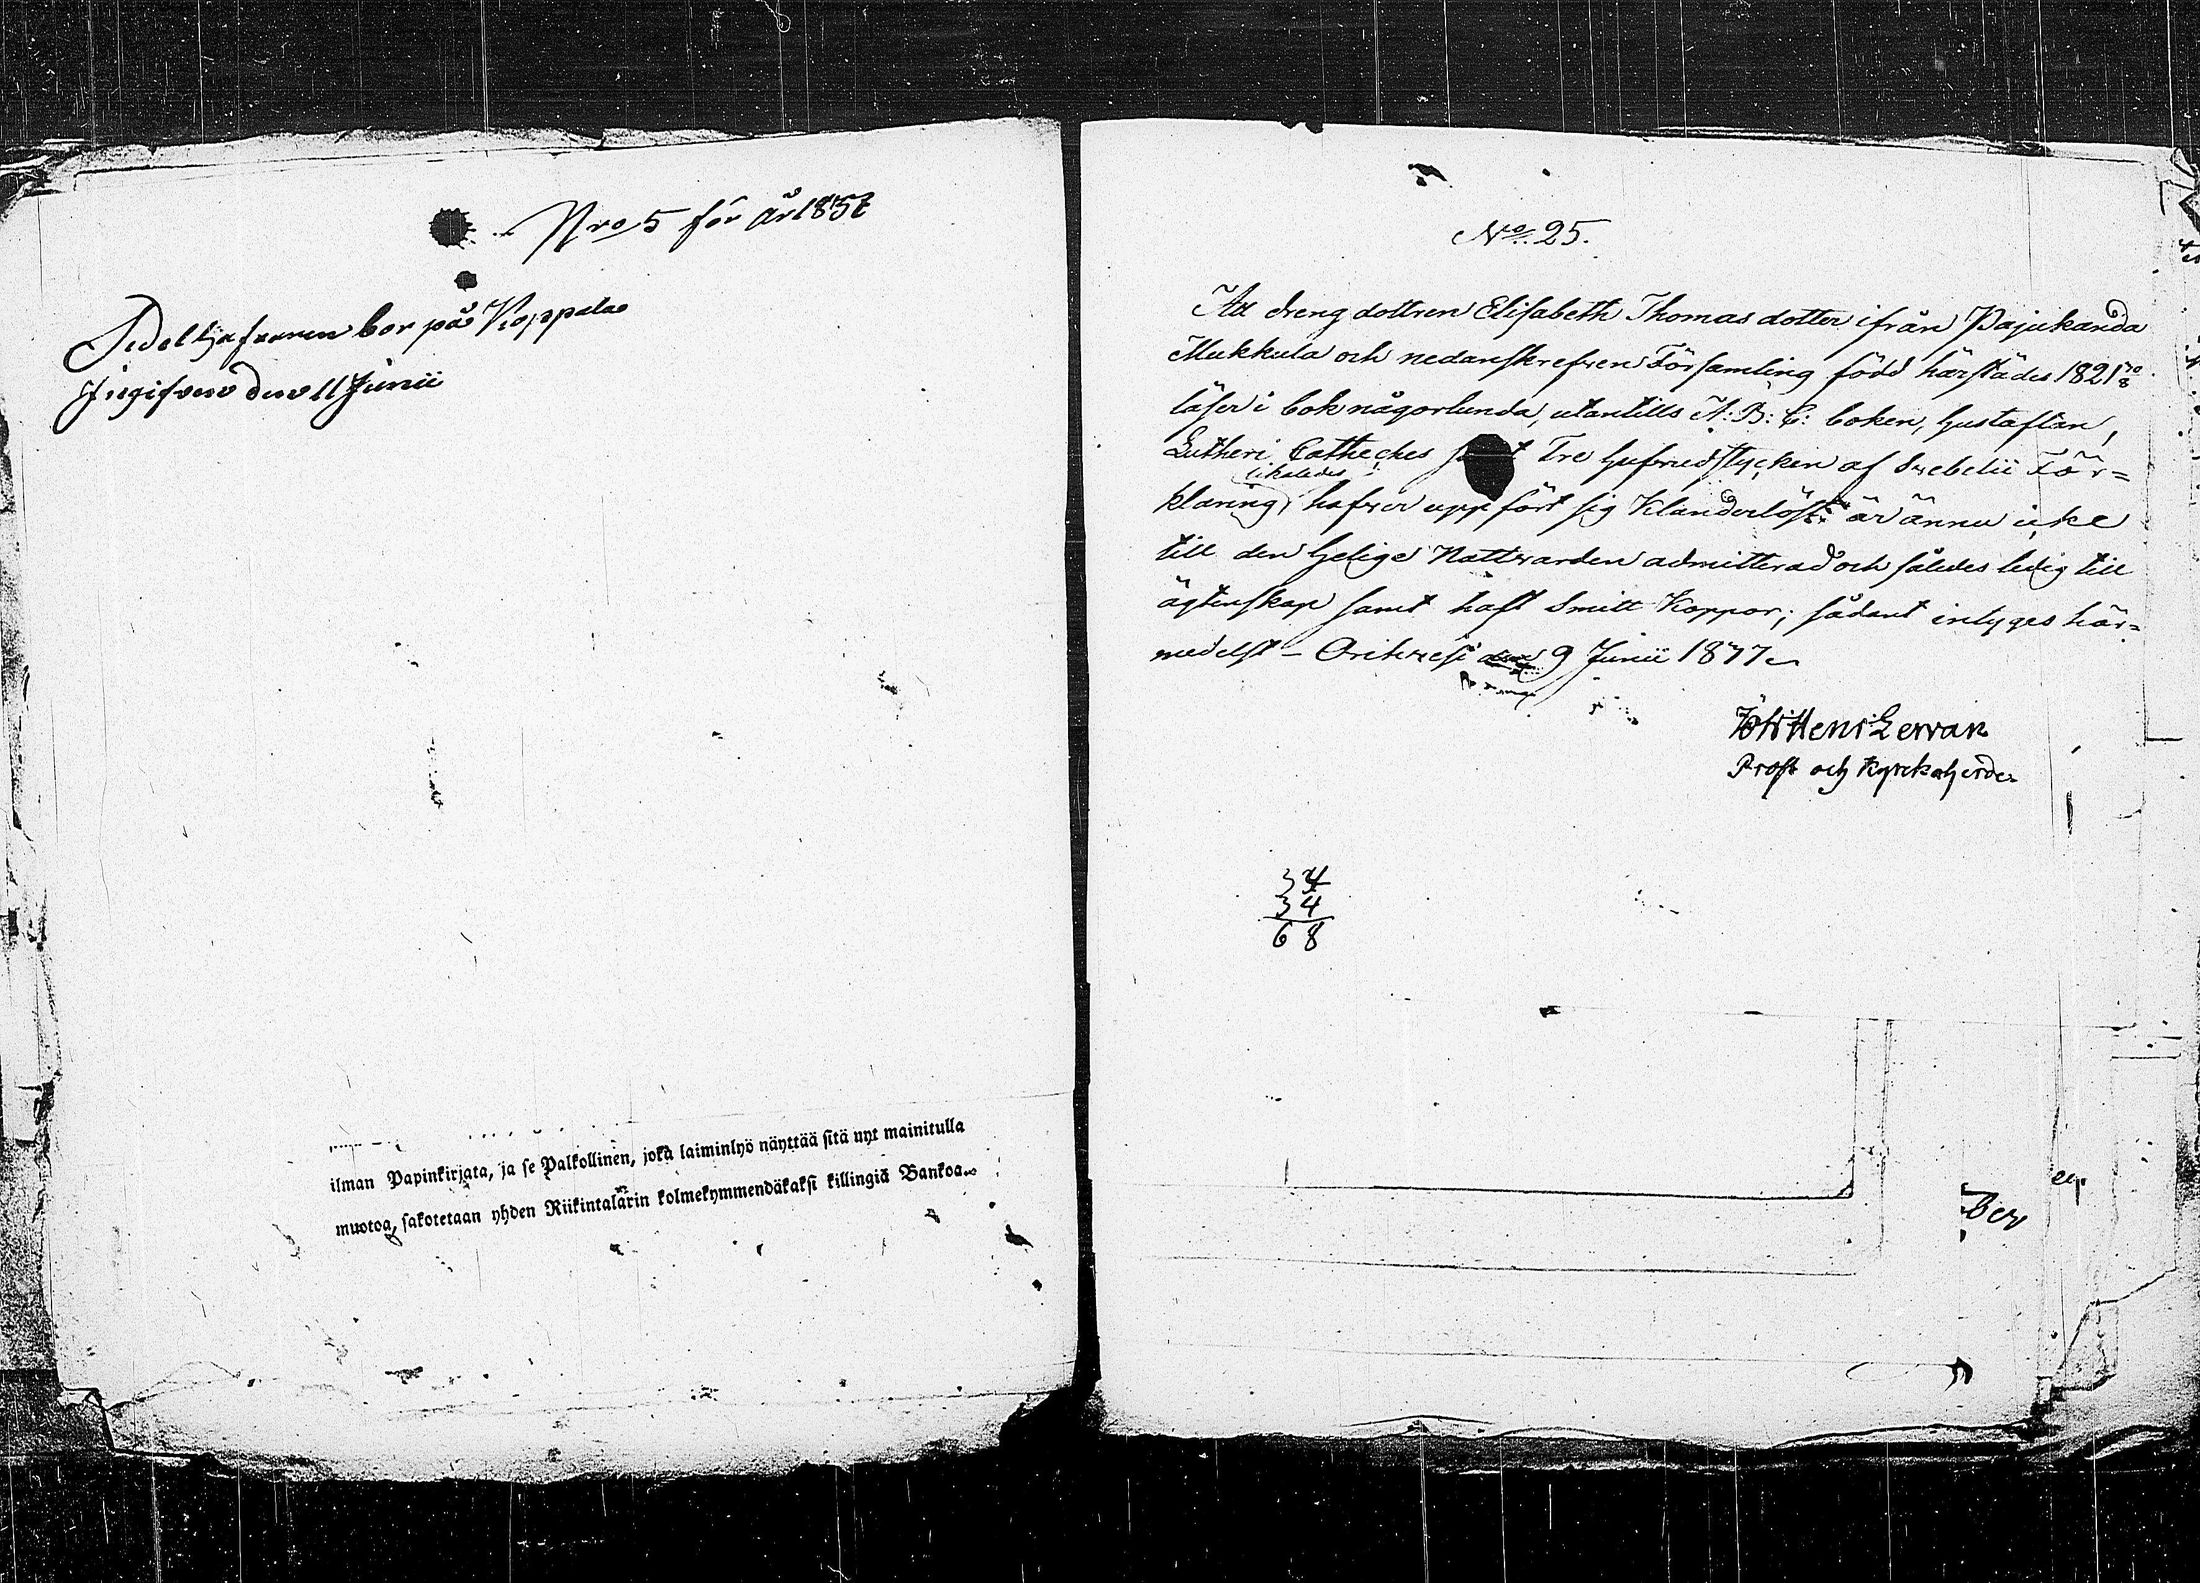 Nro 5 för år 1837
Sedelhafvaren bor på Koppala
Ingifven den 11 Junii
ilman Papinkirjata, ja se Palkollinen, joka laiminlyö näyttää sitä nyt mainitulla
muotoa, sakotetaan yhden Riikintalarin kolmekymmendäkaksi killingiä Bankoa.
No. 25.
Att dreng dottren Elisabeth Thomas dotter ifrån Pajukanda
Mukkula och nedanskrefven Församling född härstädes 1821
läser i bok någorlunda, utantills A: B: C: boken, hustaflan,
Lutheri Catheches Tre hufvudstycken af Svebelii För-
likaledes
klaring, hafver uppfört sig Klanderlöst är ännu icke
till den Helige Nattvarden admitterad och således ledig till
ägtenskap samt haft Smitt Koppor; sådant intygas här-
medelst - Orihvesi 9 Junii 1837
Joh Henr Lervan
Prost och Kyrckoherde
34
34
68